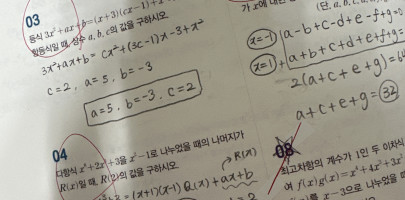 03
등식 3x²+ax+b=(x+3)(cx-1)+x
항등식일 때, 상수 a, b, c의 값을 구하시오.
3x²+ax+b = cx²+(3c-1)x-3+x²
c=2, a=5, b=-3
a=5, b=-3, c=2
04
다항식 x⁴+2x²+3을 x²-1로 나누었을 때의 나머지가
R(x)일 때, R(2)의 값을 구하시오.
→ R(x)
= (x+1)(x-1) Q(x) + ax+b
가 x에
(단, a, b, c,
x=-1 a-b+c-d+e-f+g=0
x=1 + a+b+c+d+e+f+g=
2(a+c+e+g)=64
a+c+e+g=32
08
최고차항의 계수가 1인 두 이차식
여 f(x)g(x)=x⁴+4x³+3x²
를 x-3으로 나누었을 때